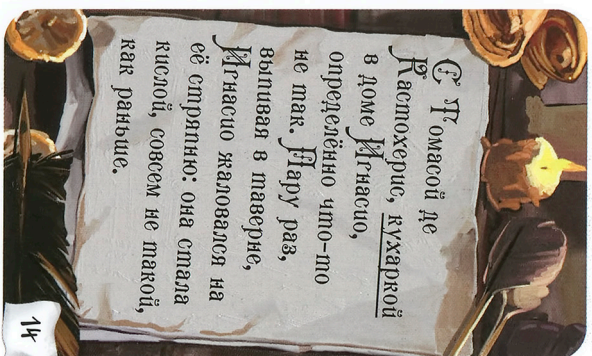 С Томасой де
Кастохерис, кухаркой
в доме Игнасио,
определённо что-то
не так. Пару раз,
выпивая в таверне,
Игнасио жаловался на
её стряпню: она стала
кислой, совсем не такой,
как раньше.
14